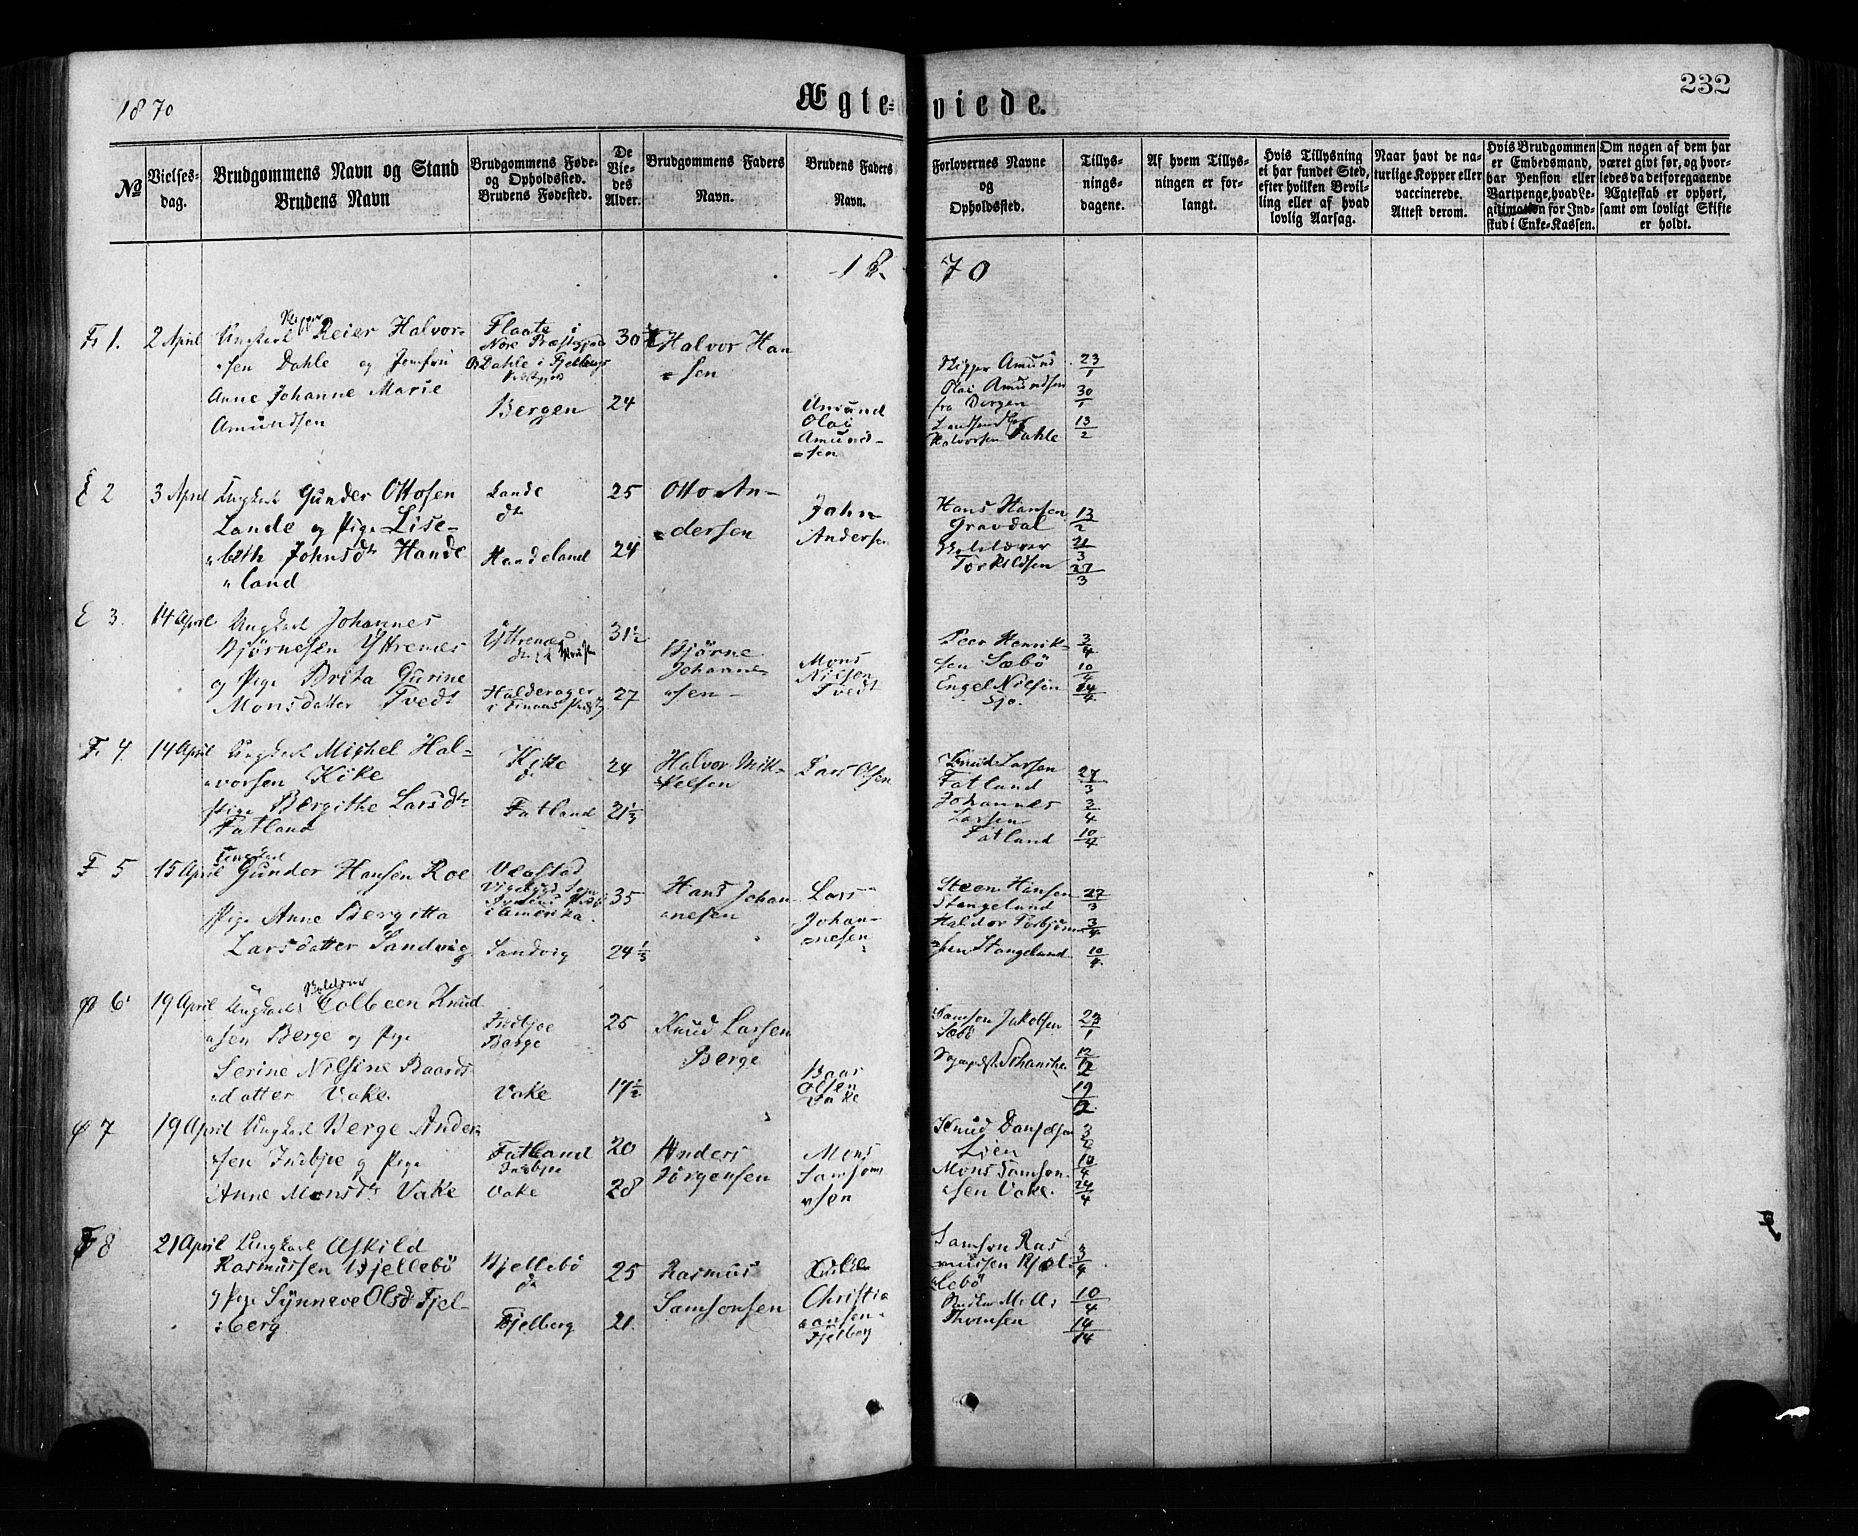 1870
Ægteviede.
232
№
Vielses-
dag.
Brudgommens Navn og Stand
Brudens Navn
Brudgommens Føde-
og Opholdssted.
Brudens Fødested.
De
Vie-
des
Alder.
Brudgommens Faders
Navn.
Brudens Faders
Navn.
Forlovernes Navne
og
Opholdssted.
Tillys-
nings-
dagene.
Af hvem Tillys-
ningen er for-
langt.
Hvis Tillysning
ei har fundet Sted,
efter hvilken Bevil-
ling eller af hvad
lovlig Aarsag.
Naar havt de na-
turlige Kopper eller
vaccinerede.
Attest derom.
Hvis Brudgommen
er Embedsmand,
har Pension eller
Vartpenge, hvad Le-
gitimation for Ind-
skud i Enke-Kassen.
Om nogen af dem har
været givt før, og hvor-
ledes da det foregaaende
Ægteskab er ophørt,
samt om lovligt Skifte
er holdt.
1870
F 1. 2 April Ungkarl Reier Halvor-
sen Dahle og Jomfru
Anne Johanne Marie
Amundsen
Flaate i
Nore Præstegjæld
Dahle i Fjelbergs
Bergen
30
24
Halvor Han
sen
Amund
Olai
Amund-
sen
Skipper Amund
Olai Amundsen
fra Bergen
Halvorsen Dahle
23/1
30/1
13/2
E 2 3 April Ungkarl Gunder Ottosen
Lande og Pige Lise-
beth Johnsdtr Hande
land
Lande
do
Handeland
25
24
Otto An-
dersen
John
Andersen
Hans Hansen
Gravdal
Torkildsen
13/2
21/3
27/3
E 3. 14 April Ungkarl Johannes
Bjørnesen Yttrenes
og Pige Brita Gurine
Monsdatter Tvedt
Yttrenes
Halderager
i Finaas
31½
27
Bjørne
Johanne
sen
Mons
Nilsen
Tvedt
Peer Henrik-
sen Sæbö
Engel Nilsen
3/4
10/4
14/4
F 4. 14 April Ungkarl Mickel Hal-
vorsen Kike
Pige Bergithe Larsdtr
Fatland
Kike
do
Fatland
24
21⅓
Halvor Mik-
kelsen
Lars Olsen
Knud Larsen
Fatland
Johannes
Larsen
Fatland
27/3
3/4
10/4
F 5 15 April Ungkarl
Gunder Hansen Roe
Pige Anne Bergitta
Larsdatter Sandvig
i Amerika.
Sandvig
35
24⅓
Hans Johan
nesen
Lars
Johan-
nesen
Steen Hansen
Stangeland
Haldor Torbjørn
sen Stangeland
27/3
3/4
10/4
6 19 April Ungkarl Colbeen Knud
sen Berge og Pige
Serine Nilsine Baards
datter Vake.
Indbjoe
Berge
Vake
25
Knud Larsen
Berge
Baar
Olsen
Vake
Samson Jakobsen
Sæbö
12/2
19/2
7 19 April Ungkarl Berge Ander
sen Indbjoe og Pige
Anne Monsdtr Vake
Fatland
Indbjoe
Vake
20
28
Anders
Jörgensen
Mons
Samson
sen
Knud Danielsen
Lien
Mons Samson
sen Vake.
10/4
F 8 21 April Ungkarl Askild
Rasmussen Bjellebö
og Pige Synneve Olsd Fjel-
berg
Bjellebö
do
Fjelberg
25
21.
Rasmus
Samsonsen
Christia
ansen
Fjelberg
Samson Ras
mussen Bjel
lebö
Thomsen
3/4
10/4
14/14